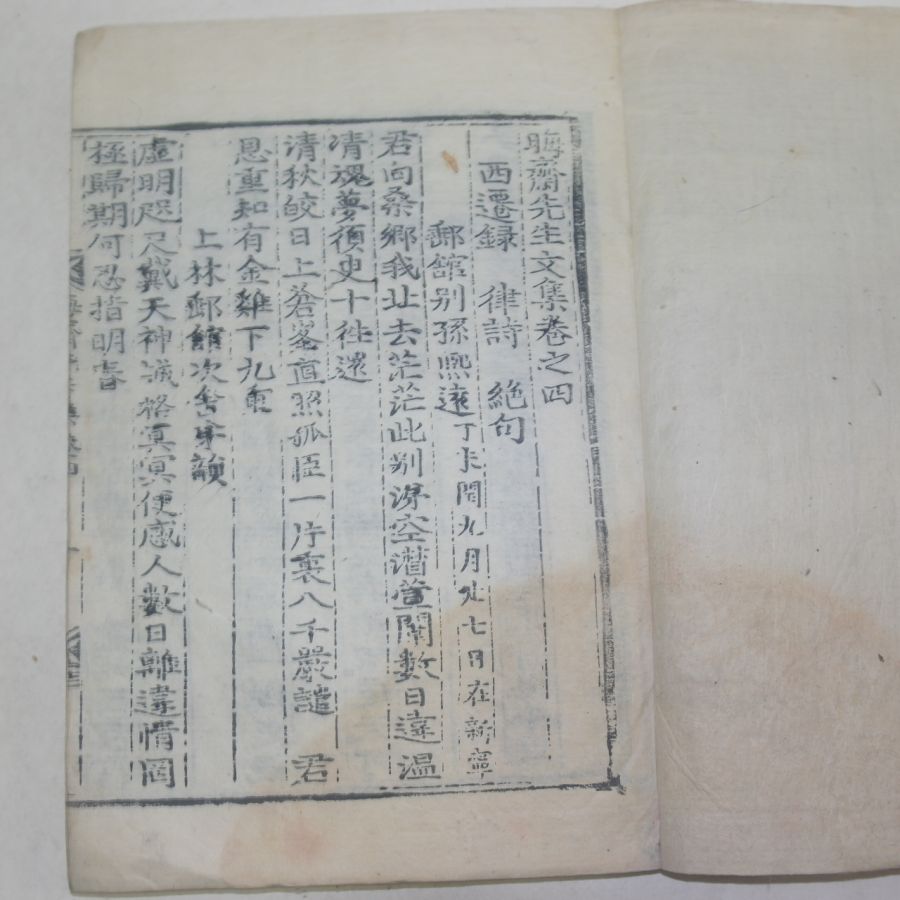 晦齋先生文集卷之四
西遷錄 律詩 絕句
郵館別孫熙遠丁未閏九月廿七日在新寧
君向桑鄉我北去茫茫此別淚空濳萱闈數日違溫
凊魂夢須臾十往還
清秋皎日上蒼峯直照孤臣一片衷八千嚴譴 君
恩重知有金雞下九重
上林郵館次舍弟韻
虛明咫尺戴天神誠格冥冥便感人數日離違情罔
極歸期何忍指明春